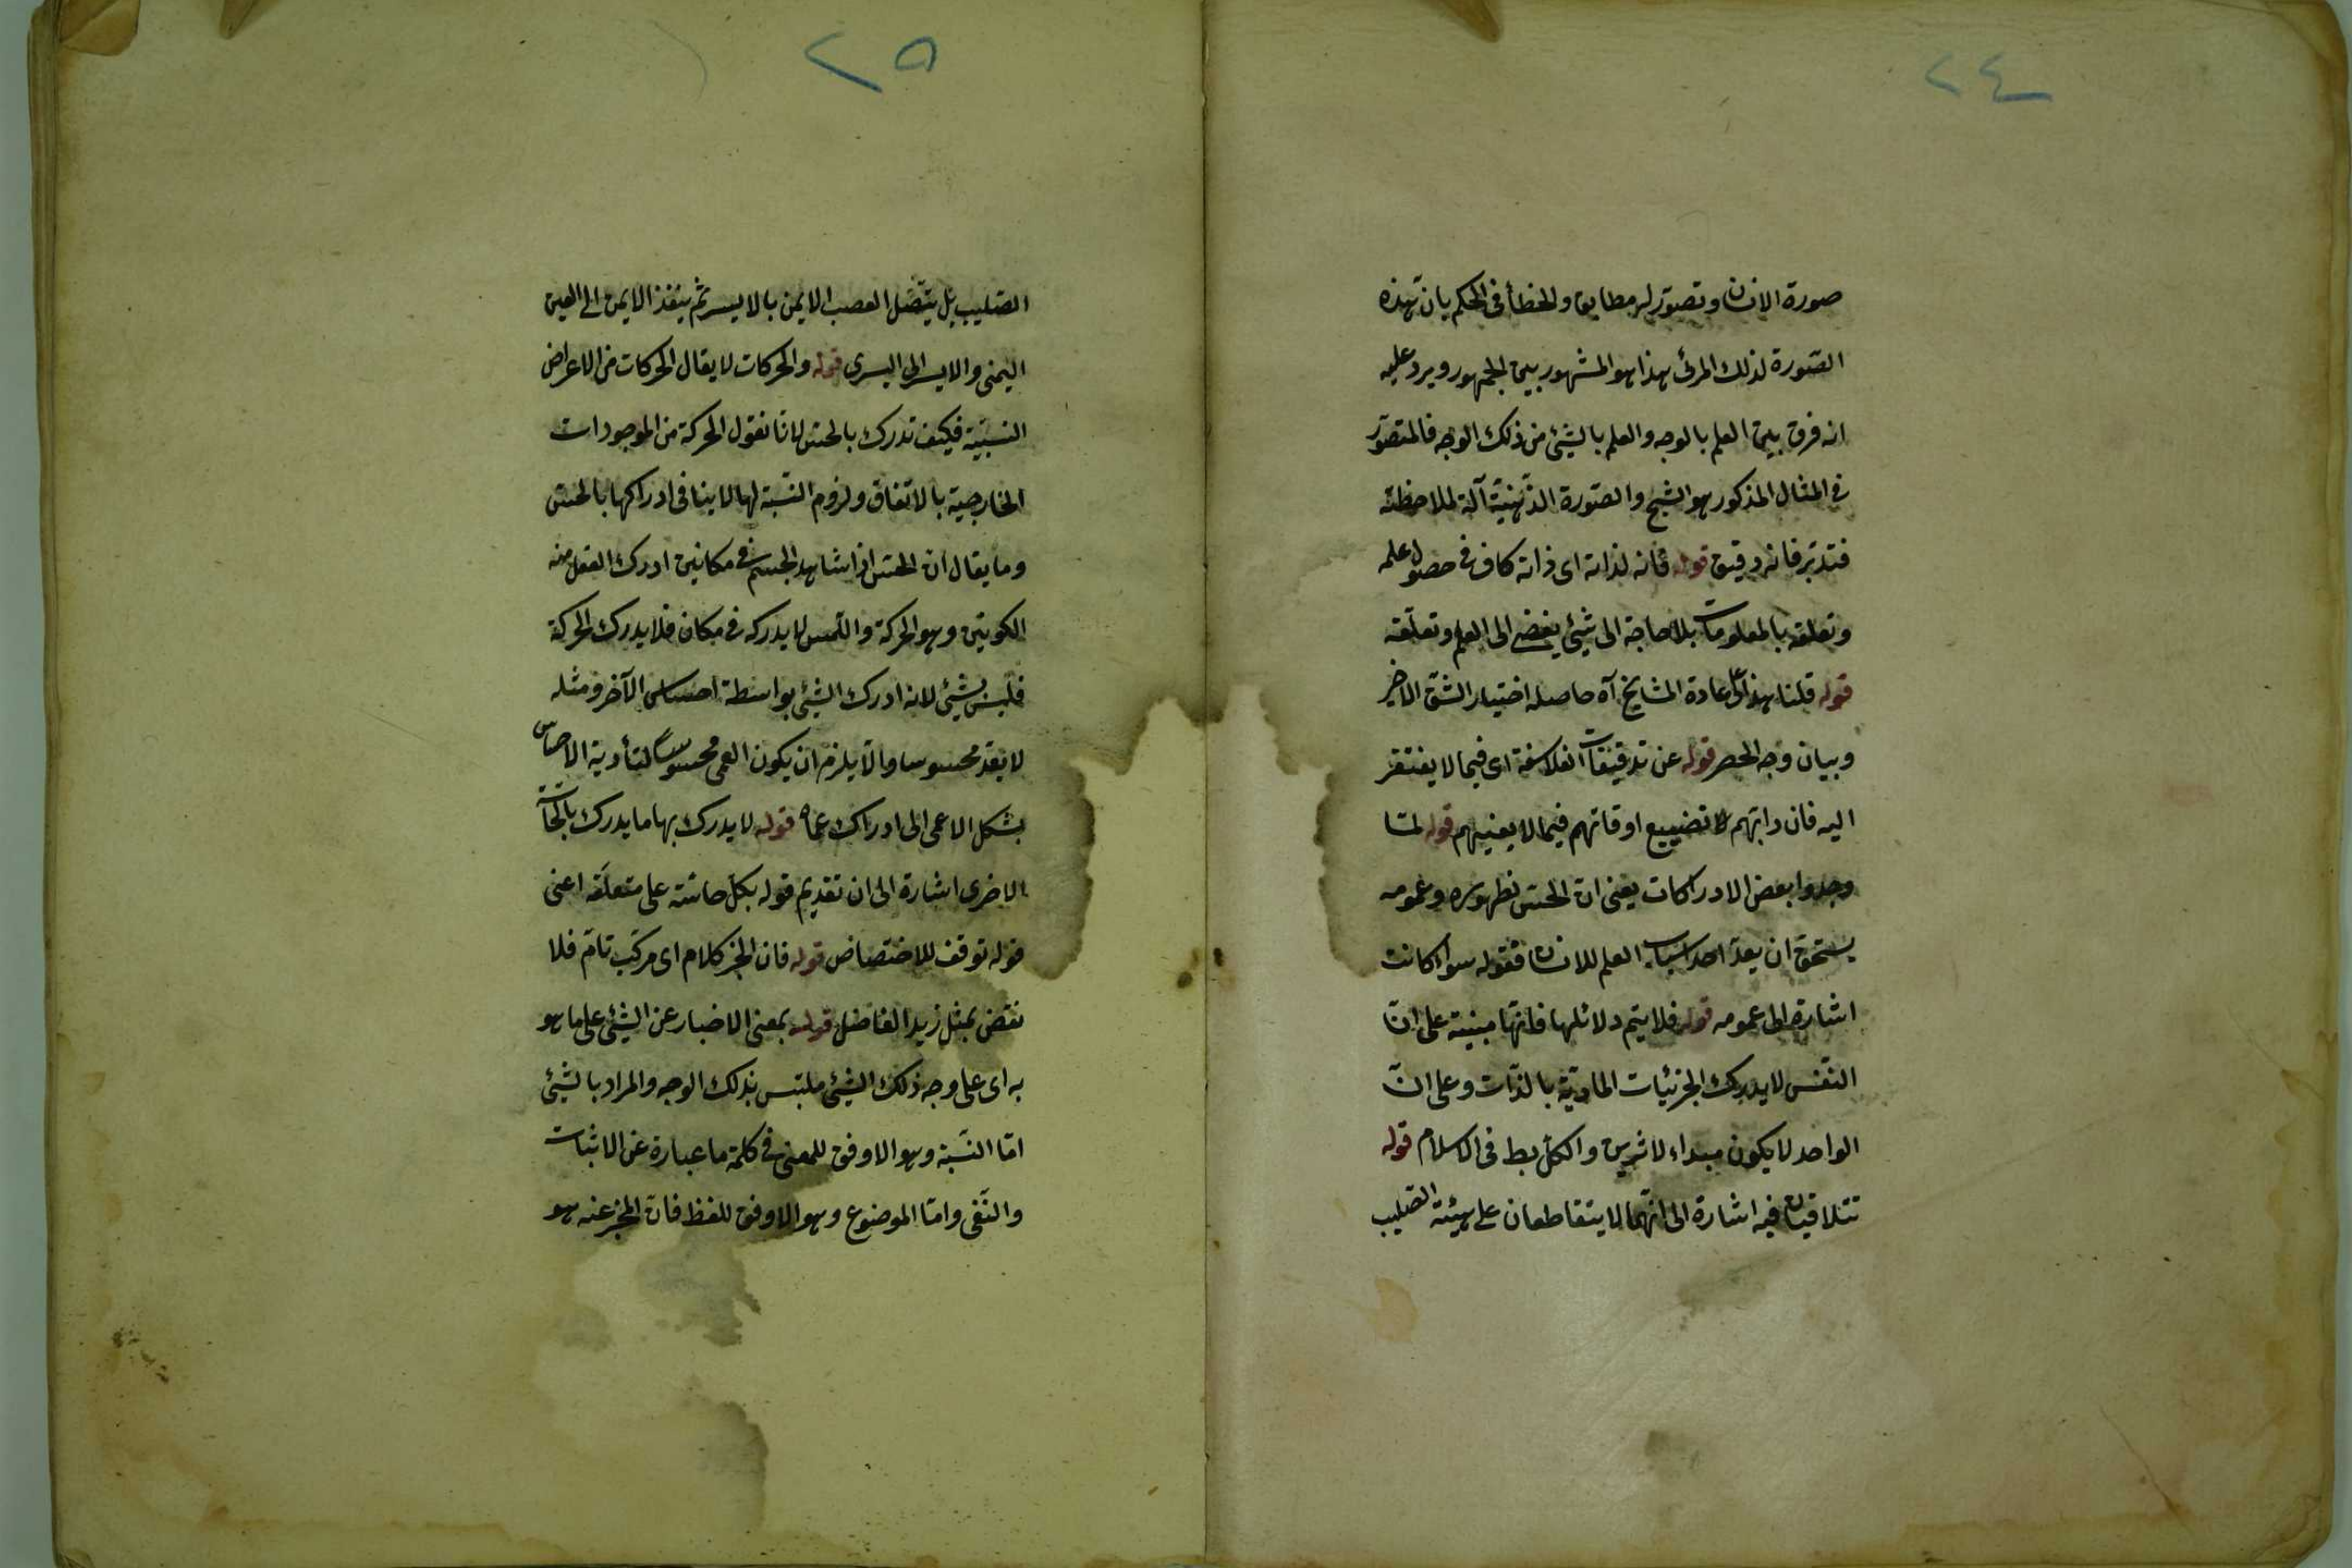 ٢٤
صورة الانسان وتصور له مطابق والخطأ في الحكم بان هذه
الصورة لذلك المرئ هذا هو المشهور بين الجمهور ويرد عليه
انه فرق بين العلم بالوجه والعلم بالشيئ من ذلك الوجه فالمتصوّر
في المثال المذكور هو الشبح والصورة الذهنيّة آلة لملاحظته
فتدبّر فانه دقيق قوله فانه لذاته اى ذاته كاف في حصول علمه
وتعلقه بالمعلومات بلا حاجة الى شيئ يفضى الى العلم وتعلقه
قوله قلنا هذا على عادة المشايخ آه حاصله اختيار الشق الاخير
وبيان وجه الحصر قوله عن تدقيقات الفلاسفة اى فيما لا يفتقر
اليه فان دابهم تضييع اوقاتهم فيما لا يعنيهم قوله لمّا
وجدوا بعض الادراكات يعنى انّ الحسّ لظهوره وعمومه
يستحق ان يعدّ احد اسباب العلم للانسان فقوله سواء كانت
اشارة الى عمومه قوله فلا يتم دلائلها فانّها مبنية على انّ
النّفس لا يدرك الجزئيات الماديّة بالذّات وعلى انّ
الواحد لا يكون مبداء لاثرين والكل بط في الاسلام قوله
تتلاقيان فيه اشارة الى انّهما لا يتقاطعان على هيئة الصّليب
٢٥
الصّليب بل يتّصل العصب الايمن بالايسر ثم ينفذ الايمن الى العين
اليمنى والايسر الى اليسرى قوله والحركات لا يقال الحركات من الاعراض
النسبيّة فكيف تدرك بالحسّ لانا نقول الحركة من الموجودات
الخارجية بالاتفاق ولزوم النّسبة لها لا ينافى ادراكها بالحسّ
وما يقال انّ الحسّ اذا شاهد الجسم في مكانين ادرك العقل منه
الكونين وهو الحركة واللّمس لا يدركه في مكان فلا يدرك الحركة
فليس بشيئ لانه ادرك الشيئ بواسطة احساس الآخر ومثله
لا يعدّ محسوسا والّا يلزم ان يكون العمى محسوسا لتأدية الاحساس
بشكل الاعمى الى ادراك عماه قوله لا يدرك بها ما يدرك بالحاسّة
الاخرى اشارة الى ان تقديم قوله بكلّ حاسّة على متعلّقه اعنى
قوله توقف للاختصاص قوله فان الخبر كلام اى مركّب تامّ فلا
نقض بمثل زيد الفاضل قوله بمعنى الاخبار عن الشيئ على ما هو
به اى على وجه ذلك الشيئ ملتبس بذلك الوجه والمراد بالشيئ
امّا النّسبة وهو الاوفق للمعنى في كلمة ما عبارة عن الاثبات
والنّفى وامّا الموضوع وهو الاوفق للفظ فانّ المخبر عنه هو